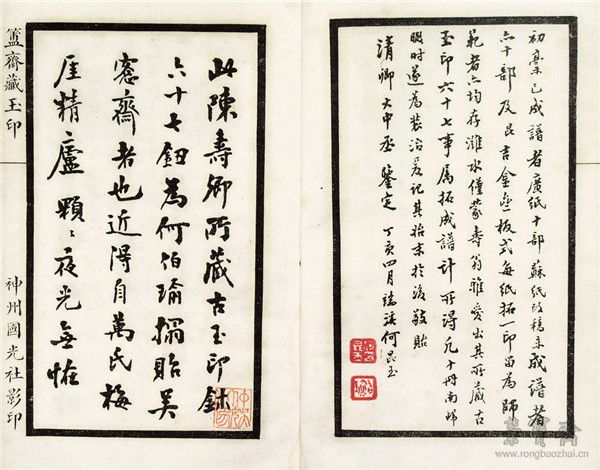 初稾已成譜者廣紙十部蘇紙改稿未成譜者
六十部及吉金板式每紙拓一印留為師
範者六均存濰水僅蒙壽翁雅愛出其所藏古
玉印六十七事属拓成譜計所得凡十冊南歸
暇時遂為裝治爰記其始末於後敬貽
清卿大中丞鑒定 丁亥四月瑞溪何昆玉
此陳壽卿所藏古玉印鉥
六十七鈕為何伯瑜搨貽吳
愙齋者也近得自萬氏梅
厓精廬顆〻夜光無怪
簠齋藏玉印
神州國光社影印
榮寶齋
www.rongbaozhai.cn